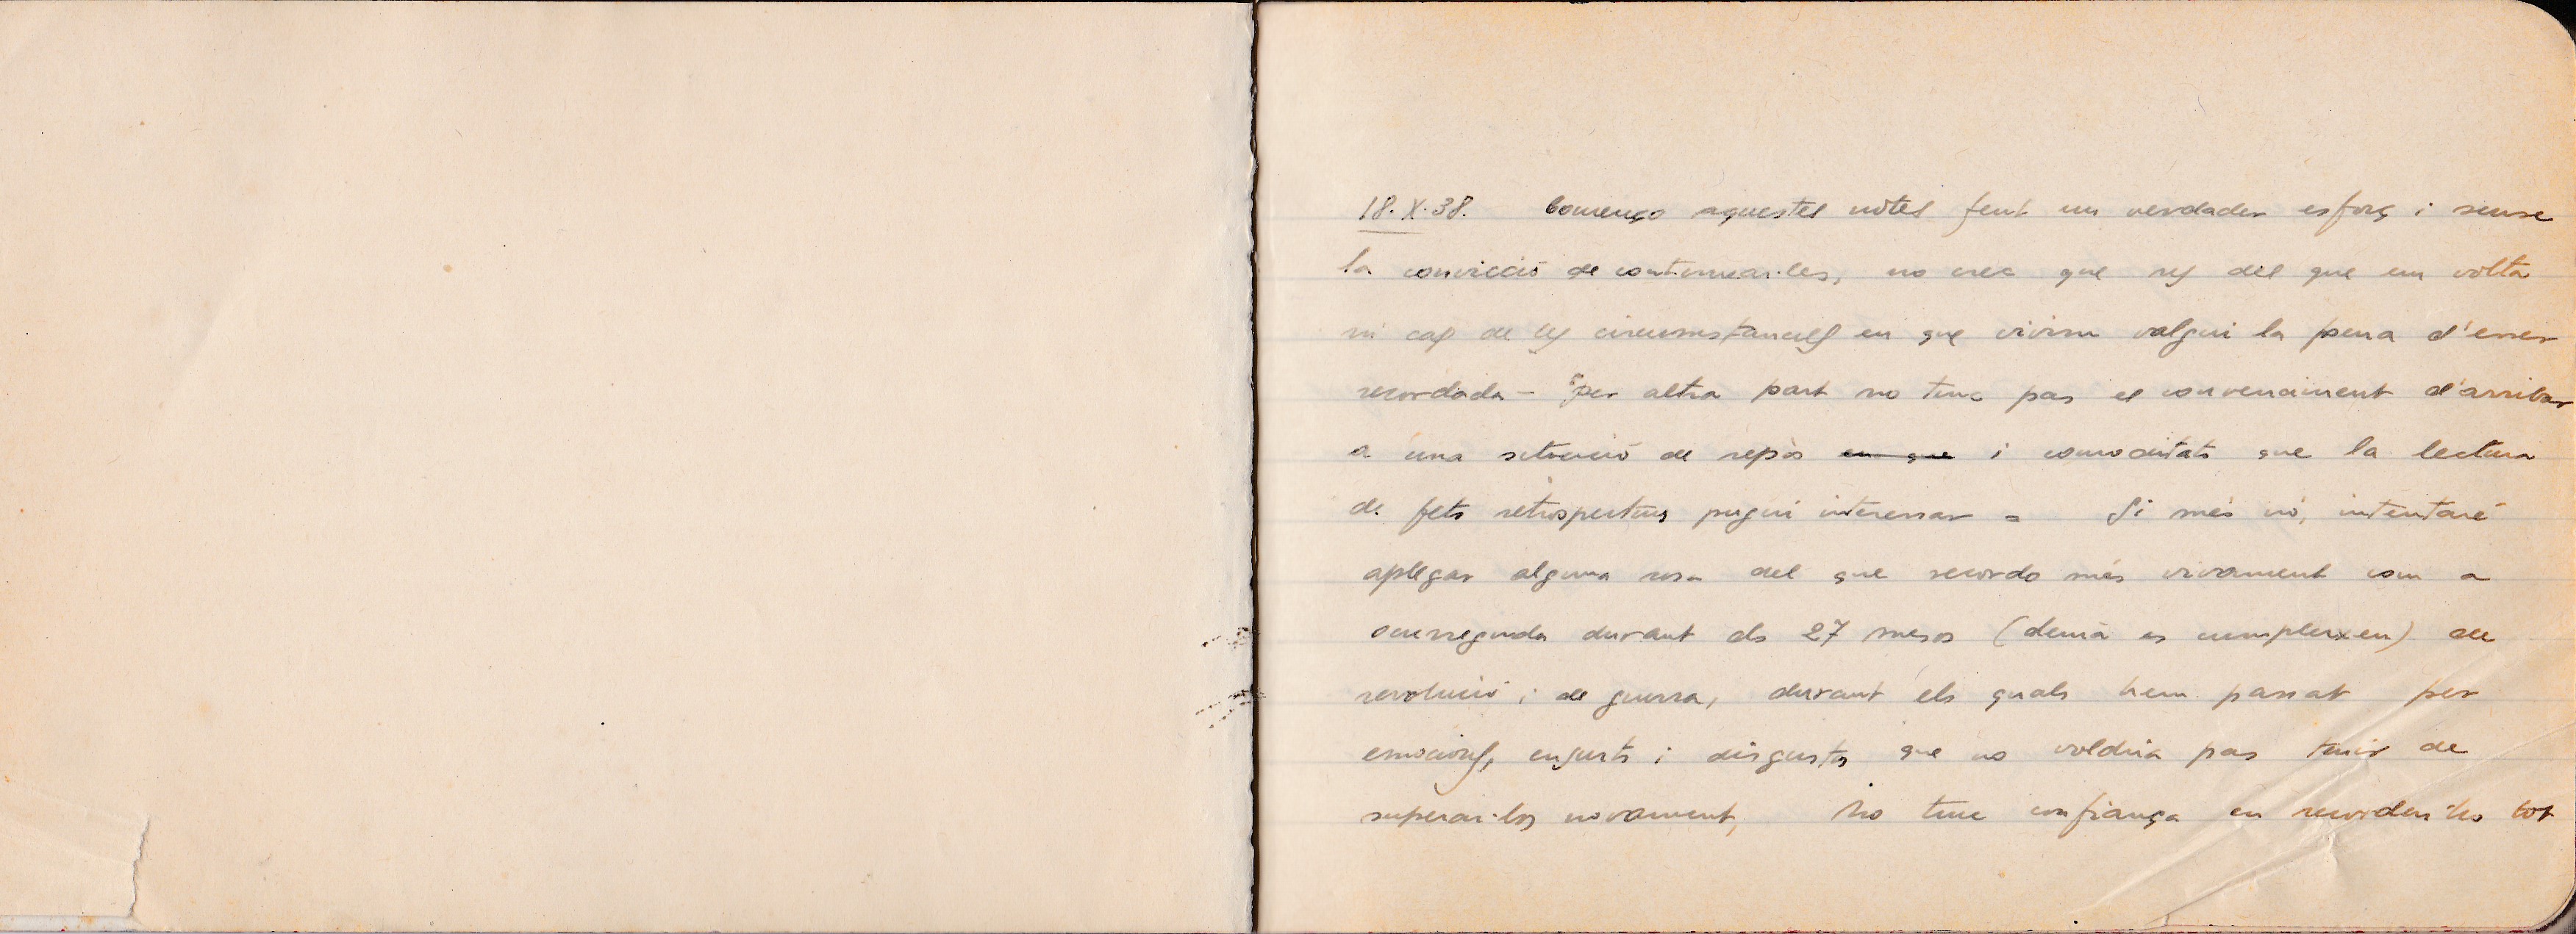 18.X.38. Començo aquestes nòtes fent un verdader esforç i sense
la convicció de continuar-les, no crec que res del que em volta
ni cap de les circumstancies en que vivim valgui la pena d'esser
recordada - Per altra part no tinc pas el convenciment d'arribar
a una situació de repòs en que i comoditats que la lectura
de fets retrospectius pugui interessar = Si més nó, intentaré
aplegar alguna cosa del que recordo més vivament com a
ocurreguda durant els 27 mesos (demà es compleixen) de
revolució i de guerra, durant els quals hem passat per
emocions, ensurts i disgustos que no voldria pas tenir de
superar-los novament, No tinc confiança en recordar-ho tot